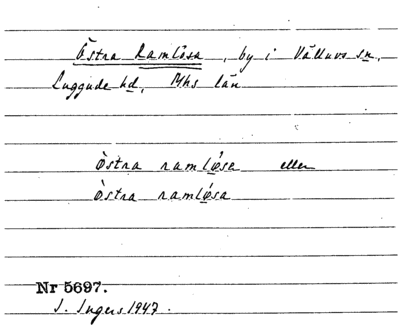 Östra Ramlösa, by i Välluvs sn,
Luggude hd, Mhs län
östra ramlösa eller
östra ramlösa
Nr 5697.
I. Ingers 1947.